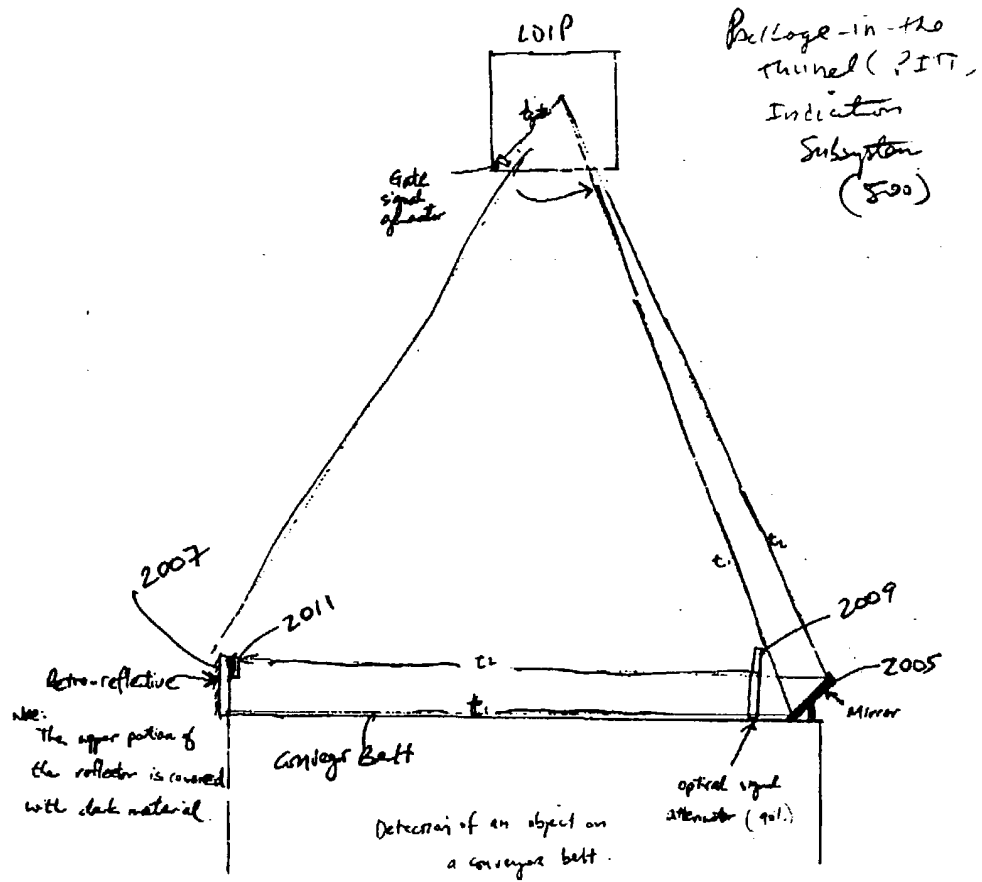 LDIP
Package-in-the
tunnel (PITT)
Indication
Subsystem
(500)
Gate
signal
generator
t1
t2
2007
2011
2009
2005
t2
t1
Retro-reflective
Mirror
Note:
The upper portion of
the reflector is covered
with dark material.
Conveyor Belt
optical signal
attenuator (90%)
Detection of an object on
a conveyor belt.